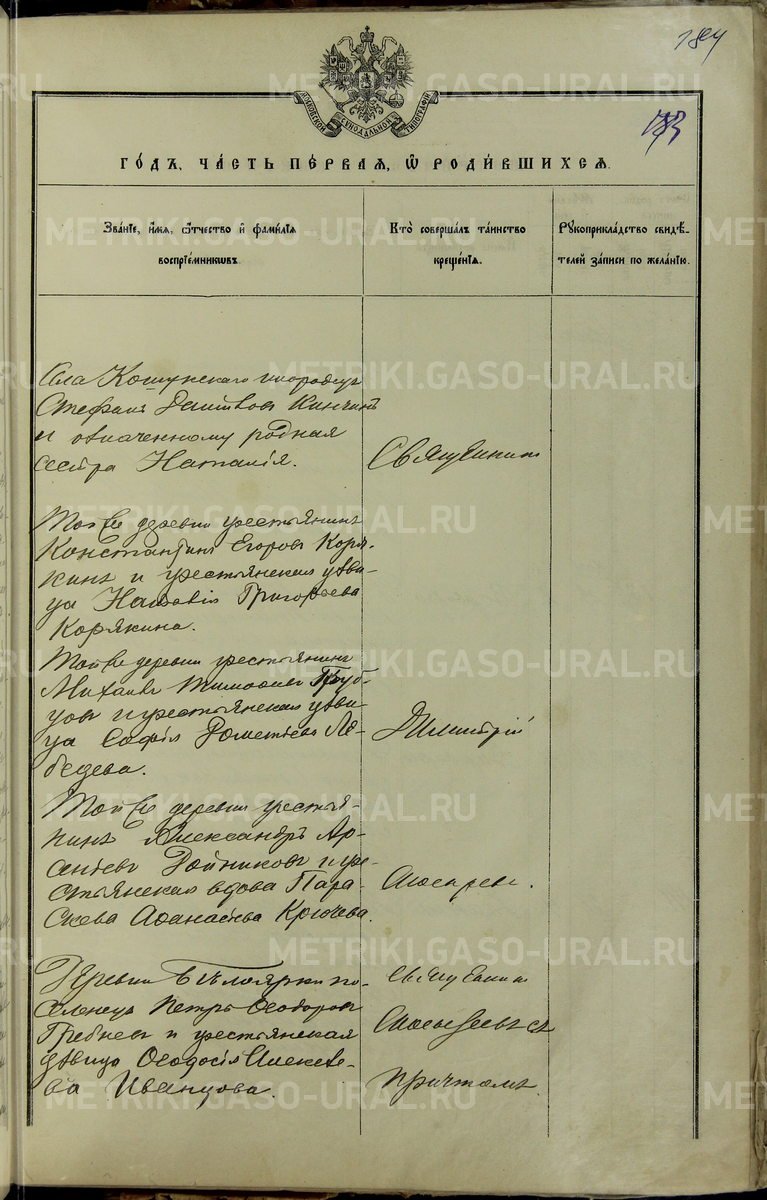 184
173
МОСКОВСКОЙ СѴНОДАЛЬНОЙ ТИПОГРАФІИ
ГО́ДЪ, ЧА́СТЬ ПЕ́РВАЯ, Ѡ҆ РОДИ́ВШИХСЯ.
Зва́нїе, и҆́мѧ, ѻ҆́тчество и҆ фами́лїѧ
воспрїе́мникѡвъ.
Кто̀ соверша́лъ та́инство
креще́нїѧ.
Рꙋкоприкла́дство свидѣ́-
телей за́писи по жела́нїю.
Села Кошунскаго инородецъ
Стефанъ Кинчинъ
и означенному родная
сестра Наталія.
Священник
Той же деревни крестьянинъ
Константинъ Егоровъ Коря-
кинъ и крестьянская дѣви-
ца Григорьева
Корякина.
Той же деревни крестьянинъ
Михаилъ Тимофеевъ
и крестьянская дѣви-
ца Софія Ле-
бедева.
Димитрій
Той же деревни крестья-
нинъ Александръ Ар-
сеньевъ Дойниковъ и кре-
стьянская вдова Пара-
скева Афанасьева Крючева.
Деревни Бѣлоярки по-
селенецъ Петръ Феодоровъ
Гребневъ и крестьянская
дѣвица Феодосія Алексѣе-
ва Иванцова.
Священник
съ
причтомъ.
METRIKI.GASO-URAL.RU